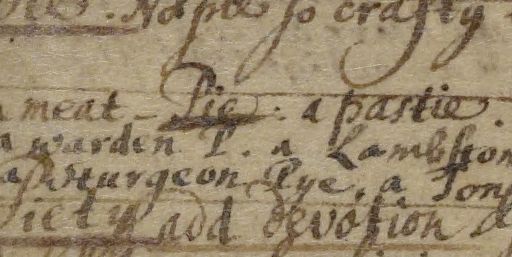 so crafty
meat - Pie : a pastie.
warden P. a Lambston
a sturgeon Pye, a Tong
iety add devotion